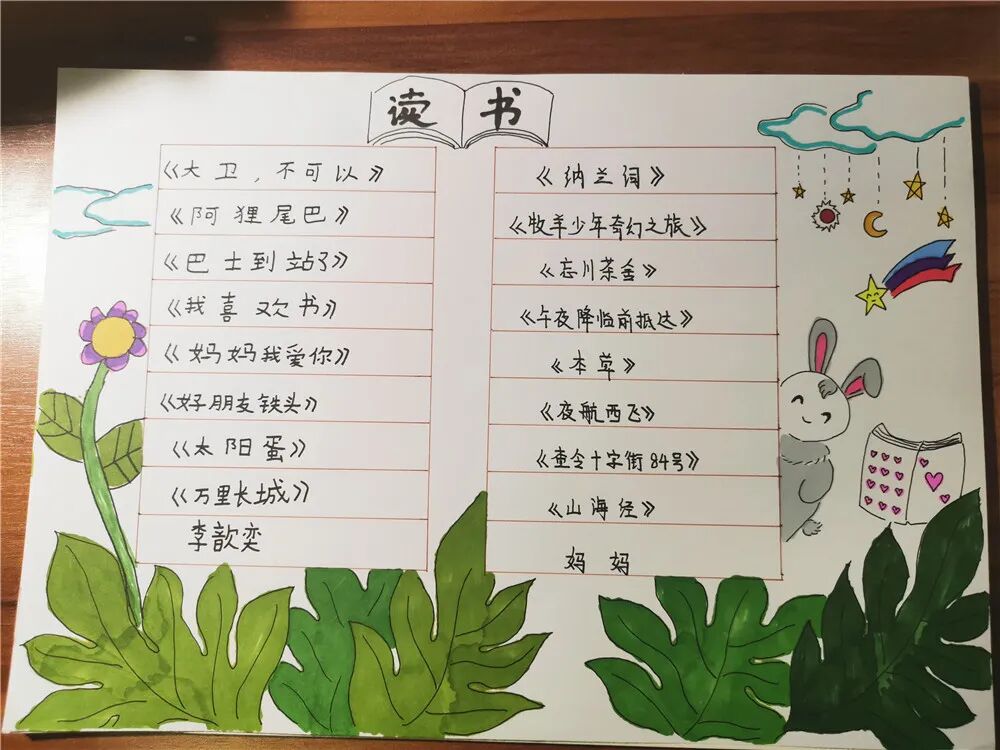 读书
《大卫，不可以》
《阿狸尾巴》
《巴士到站了》
《我喜欢书》
《妈妈我爱你》
《好朋友铁头》
《太阳蛋》
《万里长城》
李歆奕
《纳兰词》
《牧羊少年奇幻之旅》
《忘川茶舍》
《午夜降临前抵达》
《本草》
《夜航西飞》
《查令十字街84号》
《山海经》
妈妈